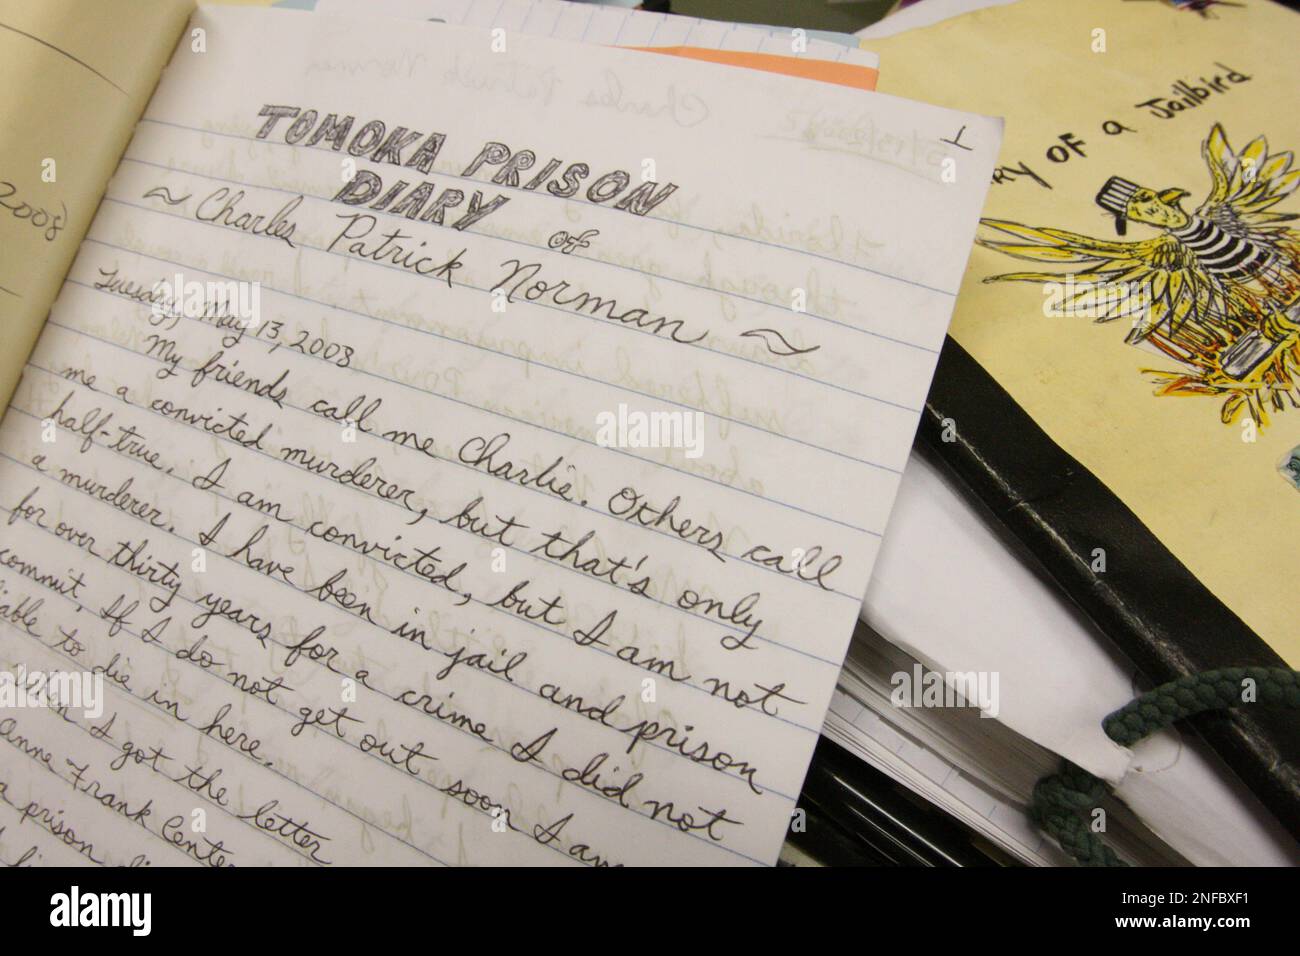 1
TOMOKA PRISON
DIARY of
~ Charles Patrick Norman ~
Tuesday, May 13, 2008
My friends call me Charlie. Others call
me a convicted murderer, but that's only
half-true. I am convicted, but I am not
a murderer. I have been in jail and prison
for over thirty years for a crime I did not
commit. If I do not get out soon I am
liable to die in here.
When I got the letter
Anne Frank Center
a prison
2008)
RY OF a Jailbird
alamy
Image ID: 2NFBXF1
www.alamy.com